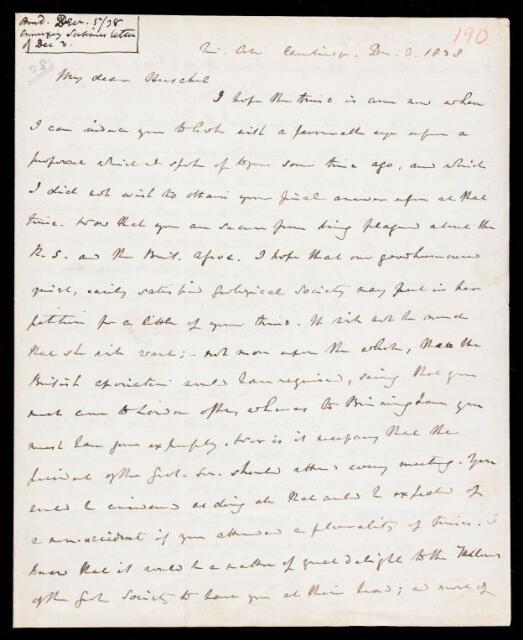 Recd. Dec. 5/38
Annexing Sabine's letter
of Dec 3.
190
Tri. Coll. Cambridge. Dec. 3. 1838
My dear Herschel
I hope the time is come now when
I can induce you to look with a favourable eye upon a
proposal which I spoke of to you some time ago, and which
I did not wish to obtain your final answer upon at that
time. Now that you are secure from being plagued about the
R. S. and the Brit. Assoc. I hope that our goodhumoured
quiet, easily satisfied Geological Society may put in her
petition for a little of your time. It will not be much
that she will want; not more upon the whole, than the
British Association would have required, seeing that you
must come to London often, whereas to Birmingham you
must have gone expressly. Nor is it necessary that the
President of the Geol. Soc. should attend every meeting. You
would be considered as doing all that could be expected of
a non-resident if you attended a plurality of times. I
know that it would be a matter of great delight to the Fellows
of the Geol. Society to have you at their head; and most of